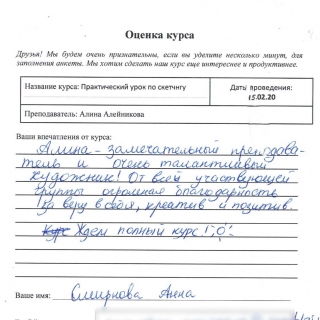 Оценка курса
Друзья! Мы будем очень признательны, если вы уделите несколько минут, для
заполнения анкеты. Мы хотим сделать наш курс еще интереснее и продуктивнее.
Название курса: Практический урок по скетчнгу
Даты проведения:
15.02.20
Преподаватель: Алина Алейникова
Ваши впечатления от курса:
Алина - замечательный преподава-
тель и очень талантливый
художник! От всей участвующей
группы огромная благодарность
за веру в себя, креатив и позитив.
Ждем полный курс!
Ваше имя: Смирнова Анна